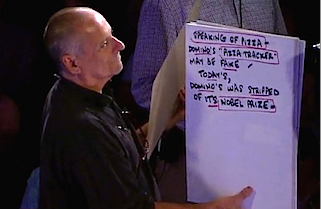 SPEAKING OF PIZZA
DOMINO'S "PIZZA TRACKER"
MAY BE FAKE
TODAY'S,
DOMINO'S WAS STRIPPED
OF ITS NOBEL PRIZE